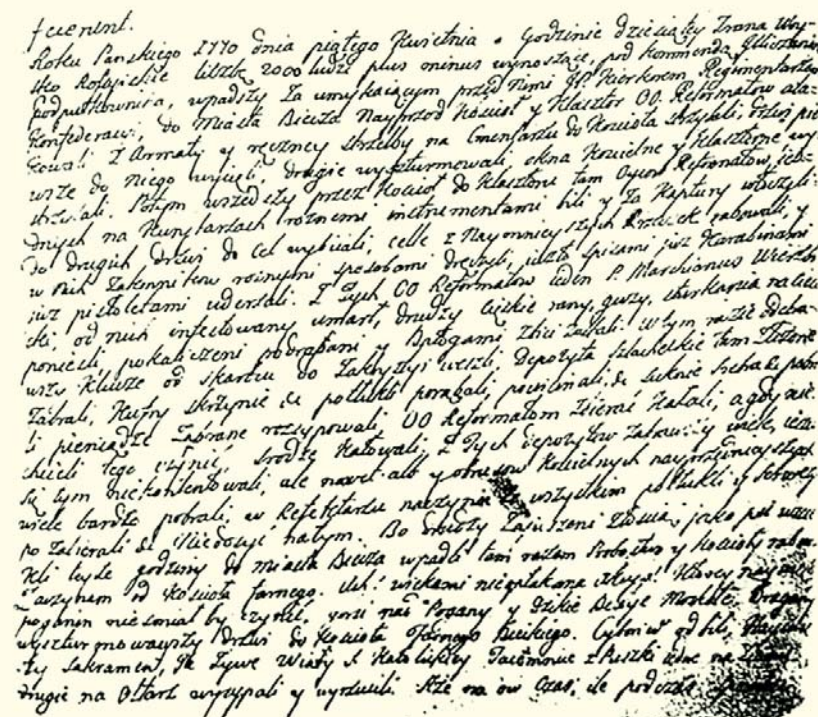 fuerint.
Roku Panskiego 1770 dnia piątego Kwietnia o Godzinie dziesiątey Zrana Woy-
sko Rossyiskie liczbą 2000 ludzi plus minus wynoszące, pod kommendą
podpułkownika, wpadszy Za umykaiącym przed nimi JP. Regimentarzem
Konfederacyi, do Miasta Biecza Nayprzod Kościoł y Klasztor OO. Reformatow
Z Armaty y ręczney strzelby na Cmentarzu do Kościoła strzylali, drzwi
wsze do niego wycieli, drugie wyszturmowali, okna Kościelne y Klasztorne
strzelali. Potym wszedszy przez Kościoł do Klasztoru tam Oycow Reformatow,
dnych na Kurytarzach roznemi instrumentami bili y Za Kaptury włoczyli:
do drugich drzwi do Cel wybiiali, celle z Naymnieyszych Rzeczek rabowali, y
w nich Zakonnikow roznymi sposobami dręczyli, iużto spisami iuż Karabinami
iuż pistoletami uderzali. Z Tych OO Reformatow ieden P. Marchianus
cki, od nich infestowany umarł, drudzy Cięskie rany, guzy, na ciele
ponieśli pokaliczeni podrąbani y Zbici Zostali. W tym razie Odebra-
wszy Klucze od skarbcu do Zakrystyi weszli, Depozyta Szlacheckie tam Złożone
Zabrali, Kufry skrzynie &c potłukli porąbali, &c suknie
li pieniądze Zabrane rozsypowali, OO Reformatom Zbierać Kazali, a gdy nie
chcieli tego czynić, srodze Katowali, Z Tych depozytow Zabrawszy wiele,
się tym niekontentowali, ale nawet y Kościelnych
wiele bardzo pobrali, w Refektarzu naczynia wszytkim potłukli y
po Zabierali &c Niedosyć natym. Bo Zaiuszeni Złością, jako psi
teyże godziny do miasta Biecza wpadli tam razem Probostwo y Kościoły
Zaczynam od Kościoła farnego. Ach! wiekami nieopłakana
poganin nieśmiał by czynić, gorsi nad Pogany y dzikie Bestye Moskale Dragany
wyszturmowawszy drzwi do Kościoła Farnego Bieckiego. Cyborium odbili,
ty Sakrament, Żywe Wiary S. Katolickiey Taiemnice z Puszki iedne na
drugie na Ołtarz wysypali y wyrzucili. na ow Czas, ile podczas